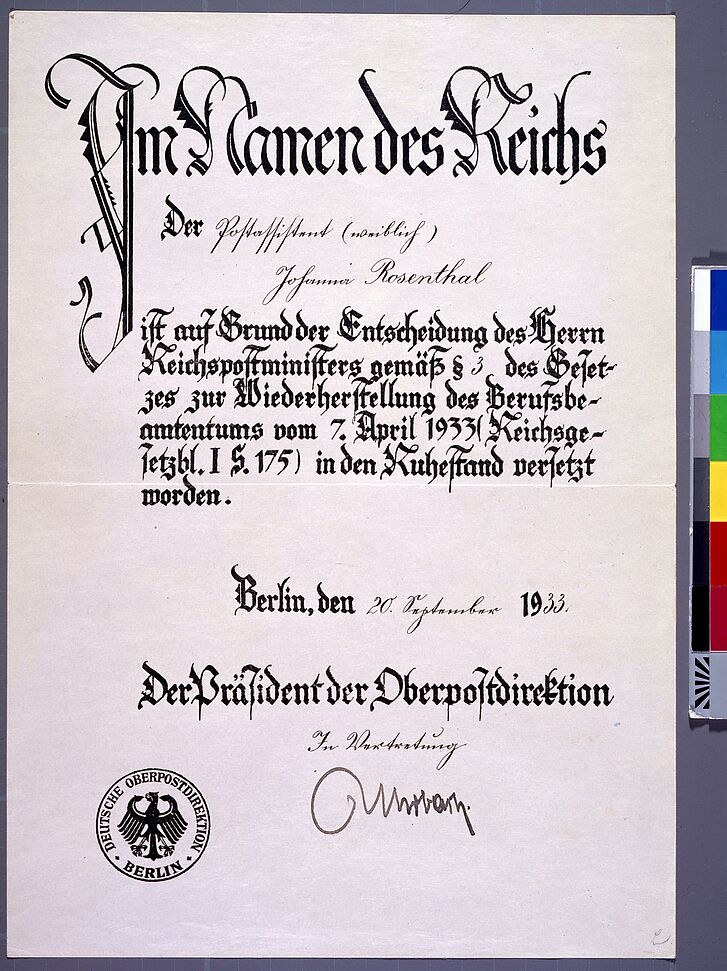 Im Namen des Reichs
Der Postassistent (weiblich)
Johanna Rosenthal
ist auf Grund der Entscheidung des Herrn
Reichspostministers gemäß § 3 des Geset-
zes zur Wiederherstellung des Berufsbe-
amtentums vom 7. April 1933 (Reichsge-
setzbl. I S. 175) in den Ruhestand versetzt
worden.
Berlin, den 20. September 1933.
Der Präsident der Oberpostdirektion
In Vertretung
DEUTSCHE OBERPOSTDIREKTION
• BERLIN •